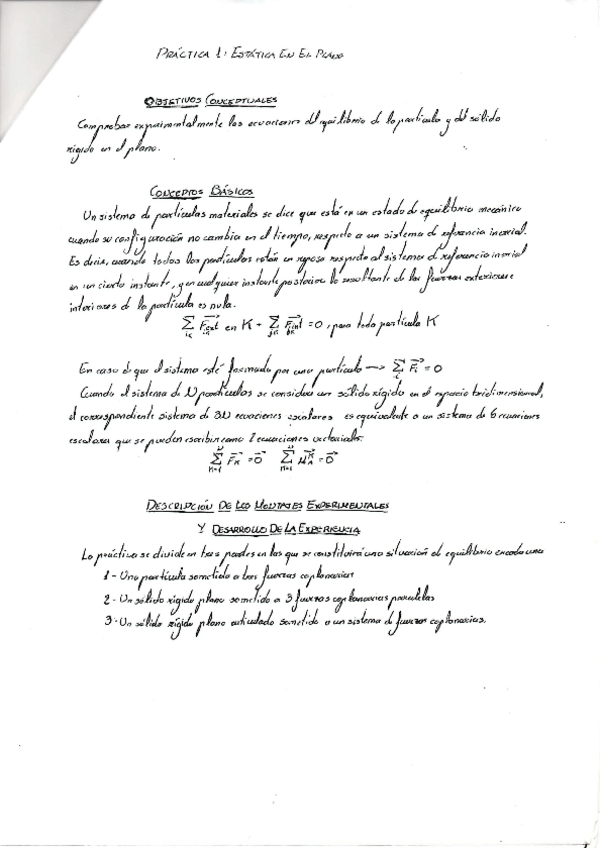 PRÁCTICA 1: ESTÁTICA EN EL PLANO
OBJETIVOS CONCEPTUALES
Comprobar experimentalmente las ecuaciones del equilibrio de la partícula y del sólido
rígido en el plano.
CONCEPTOS BÁSICOS
Un sistema de partículas materiales se dice que está en un estado de equilibrio mecánico
cuando su configuración no cambia en el tiempo, respecto a un sistema de referencia inercial.
Es decir, cuando todas las partículas están en reposo respecto al sistema de referencia inercial
en un cierto instante, y en cualquier instante posterior la resultante de las fuerzas exteriores e
interiores de la partícula es nula.
∑ F⃗ext en K + ∑ F⃗int = 0, para toda partícula K
En caso de que el sistema esté formado por una partícula → ∑ F⃗i = 0
Cuando el sistema de N partículas se considera un sólido rígido en el espacio tridimensional,
el correspondiente sistema de 3N ecuaciones escalares es equivalente a un sistema de 6 ecuaciones
escalares que se pueden escribir como 2 ecuaciones vectoriales:
∑ F⃗K = 0⃗ ∑ M⃗ = 0⃗
DESCRIPCIÓN DE LOS MONTAJES EXPERIMENTALES
Y DESARROLLO DE LA EXPERIENCIA
La práctica se divide en tres partes en las que se constituirá una situación de equilibrio en cada una
1- Una partícula sometida a tres fuerzas coplanarias
2- Un sólido rígido plano sometido a 3 fuerzas coplanarias paralelas
3- Un sólido rígido plano articulado sometido a un sistema de fuerzas coplanarias.